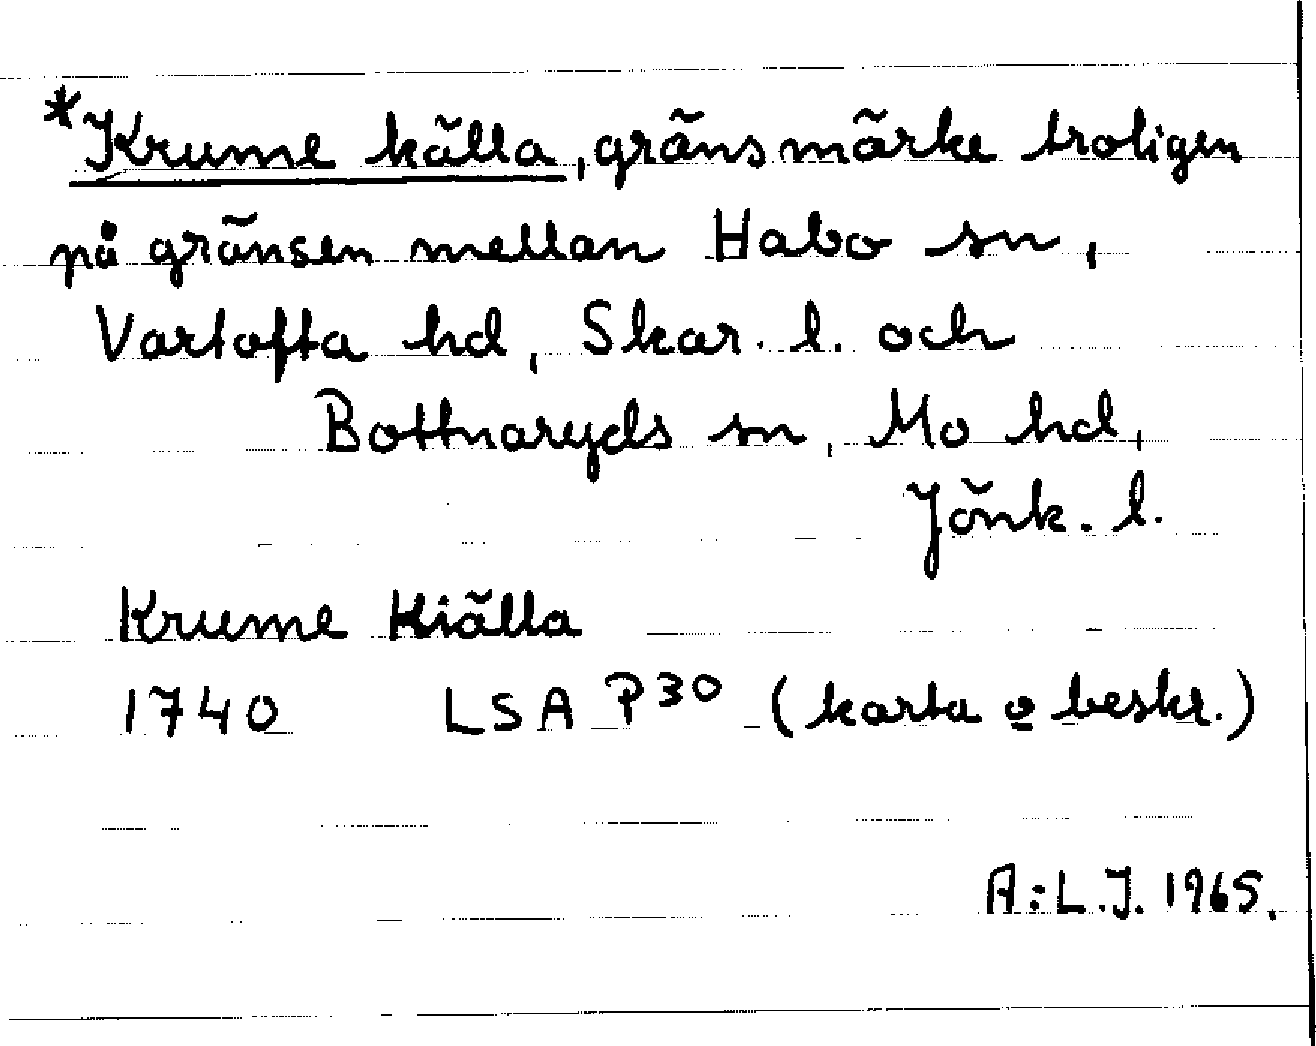 *Krume källa, gränsmärke troligen
på gränsen mellan Habo sn,
Vartofta hd, Skar. l. och
Bottnaryds sn, Mo hd,
Jönk. l.
Krume Kiälla
1740 LSA P30 (karta o beskr.)
A:L.J. 1965.